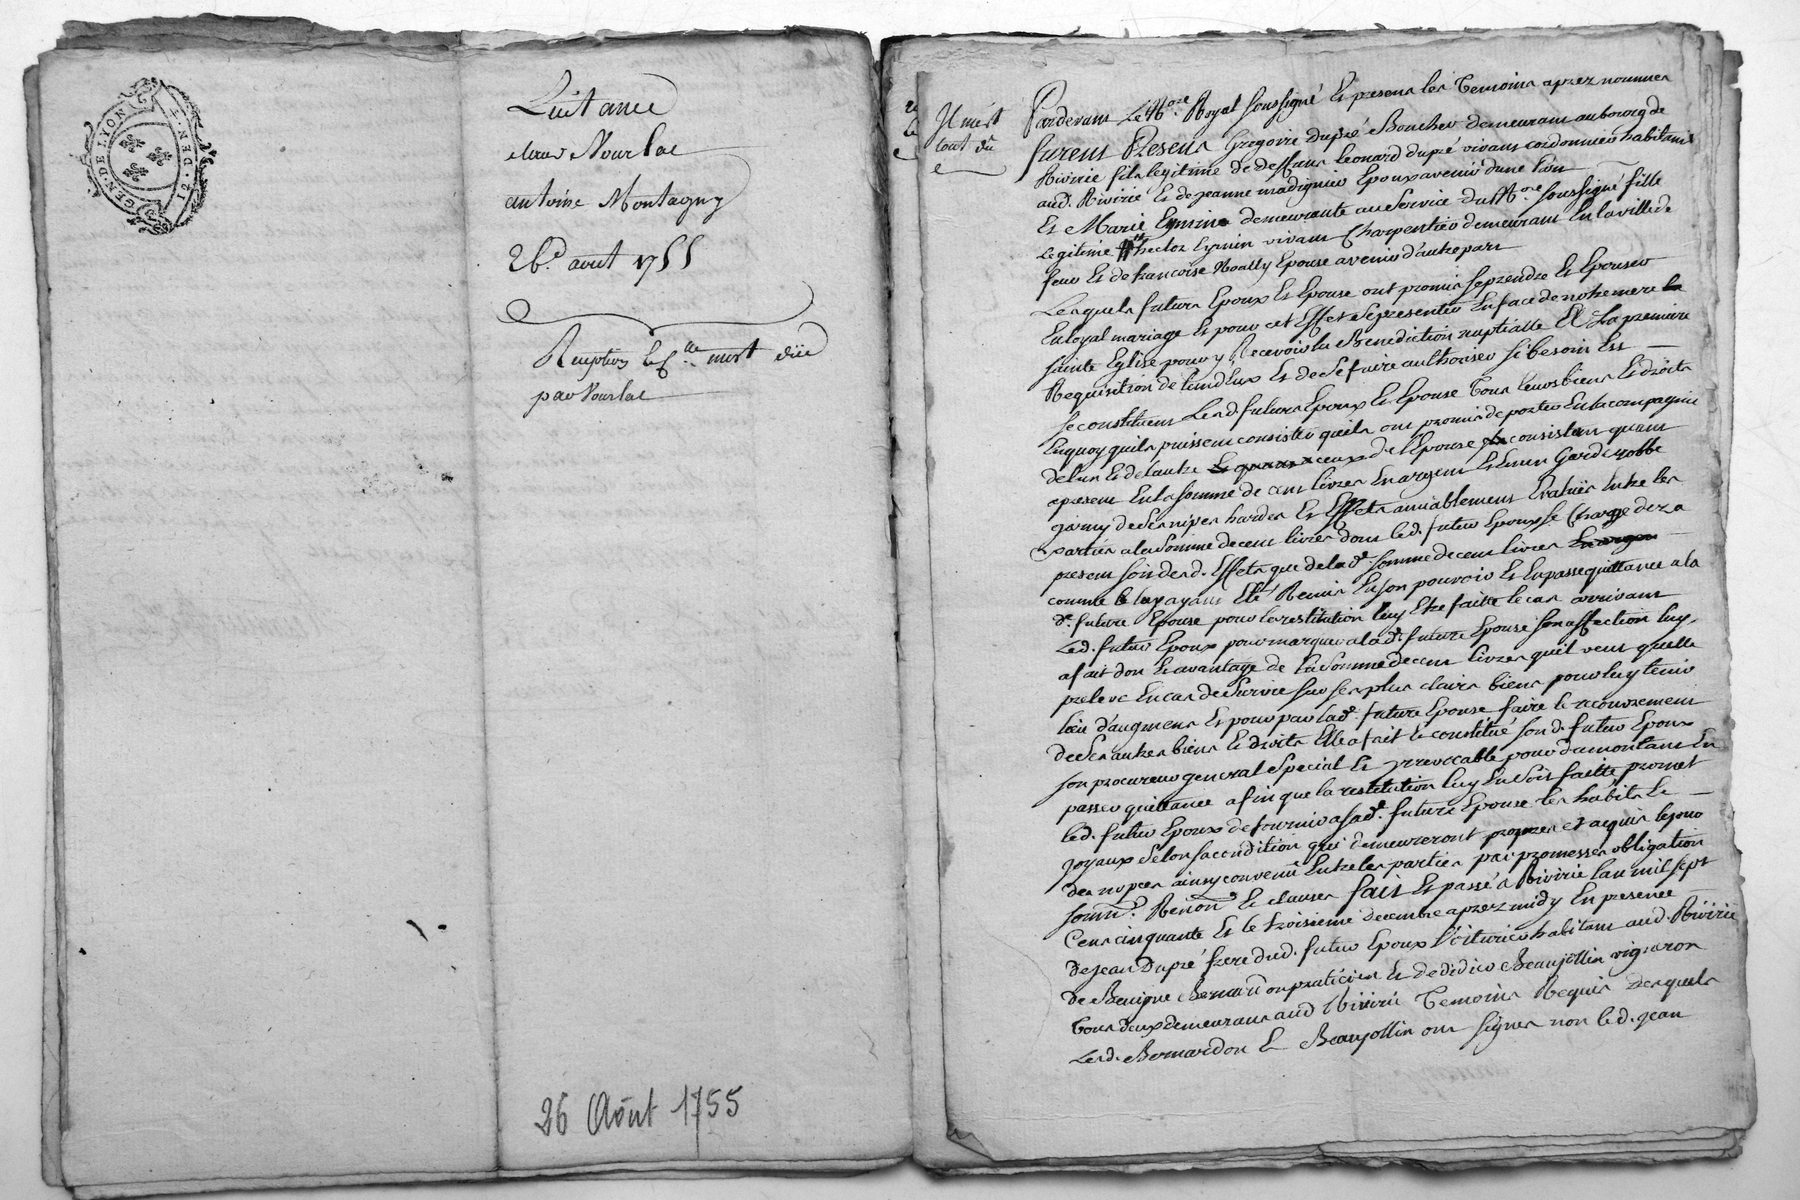 GEN. DE LYON
Quitance
Nourlac
antoine Montagny
26e. aout 1755
par Nourlac
26 Août 1755
Il m'est
tout dû
Pardevant Le Nore. Royal soussigné Et presens les Temoins aprez nommes
furent Presens Gregoire dupré Boucher demeurant au bourg de
Riverie fils legitime de deffunt Leonard dupré vivant cordonnier habitant
aud. Riverie Et de jeanne madignier Epoux avenir dune Part
Et Marie Eymin demeurante au service du Nore. soussigné fille
Legitime hector Eymin vivant Charpentier demeurant En la ville de
feur Et de francoise Noally Epouse avenir d'autre part
Lesquels futurs Epoux Et Epouse ont promis se prendre Et Epouser
En loyal mariage Et pour cet Effet se presenter En face de notre mere
sainte Eglise pour y Recevoir la Benediction nuptialle A La premiere
Requisition de l'un d'Eux Et de se faire authoriser si besoin Est
se constituent Lesd. futurs Epoux Et Epouse Tous leurs biens Et droits
En quoy quils puissent consister quils ont promis de porter En la compagnie
de l'un Et de l'autre ceux de l'Epouse consistent quant
apresent En la somme de cent livres En argent Et En un Garderobbe
garny de ses nipes hardes Et Effets amiablement Evalués Entre les
parties a la somme de cent livres dont led. futur Epoux se Charge dez a
present soit desd. Effets que de lad. somme de cent livres
comme le tout ayant Eté Remis En son pouvoir Et En passe quittance a la
de. future Epouse pour la restitution luy Etre faitte le cas arrivant
Led. futur Epoux pour marquer a lad. future Epouse son affection luy
a fait don Et avantage de La somme de cent livres quil veut quelle
preleve En cas de survie sur ses plus clairs biens pour luy tenir
lieu d'augment Et pour par lade. future Epouse faire le recouvrement
de ses autres biens Et droits Elle a fait Et constitué sond. futur Epoux
son procureur general special Et yrrevocable pour du montant En
passer quittance afin que la restitution luy En soit faitte, promet
led. futur Epoux de fournir a sade. future Epouse les habits Et
joyaux selon sa condition qui demeureront propres et acquis le jour
des nopces ainsy convenû Entre les parties par promesses obligation
soum. Renon. Et clauses fait Et passé a Riverie l'an mil sept
Cent cinquante Et le troisieme decembre aprez midy En presence
de jean Dupré frere dud. futur Epoux Voiturier habitant aud. Riverie
de Benigne Bernardon praticien Et de didier Beaujollin vigneron
Tous deux demeurans aud Riverie Temoins Requis desquels
Lesd. Bernardon Et Beaujollin ont signes non led. jean